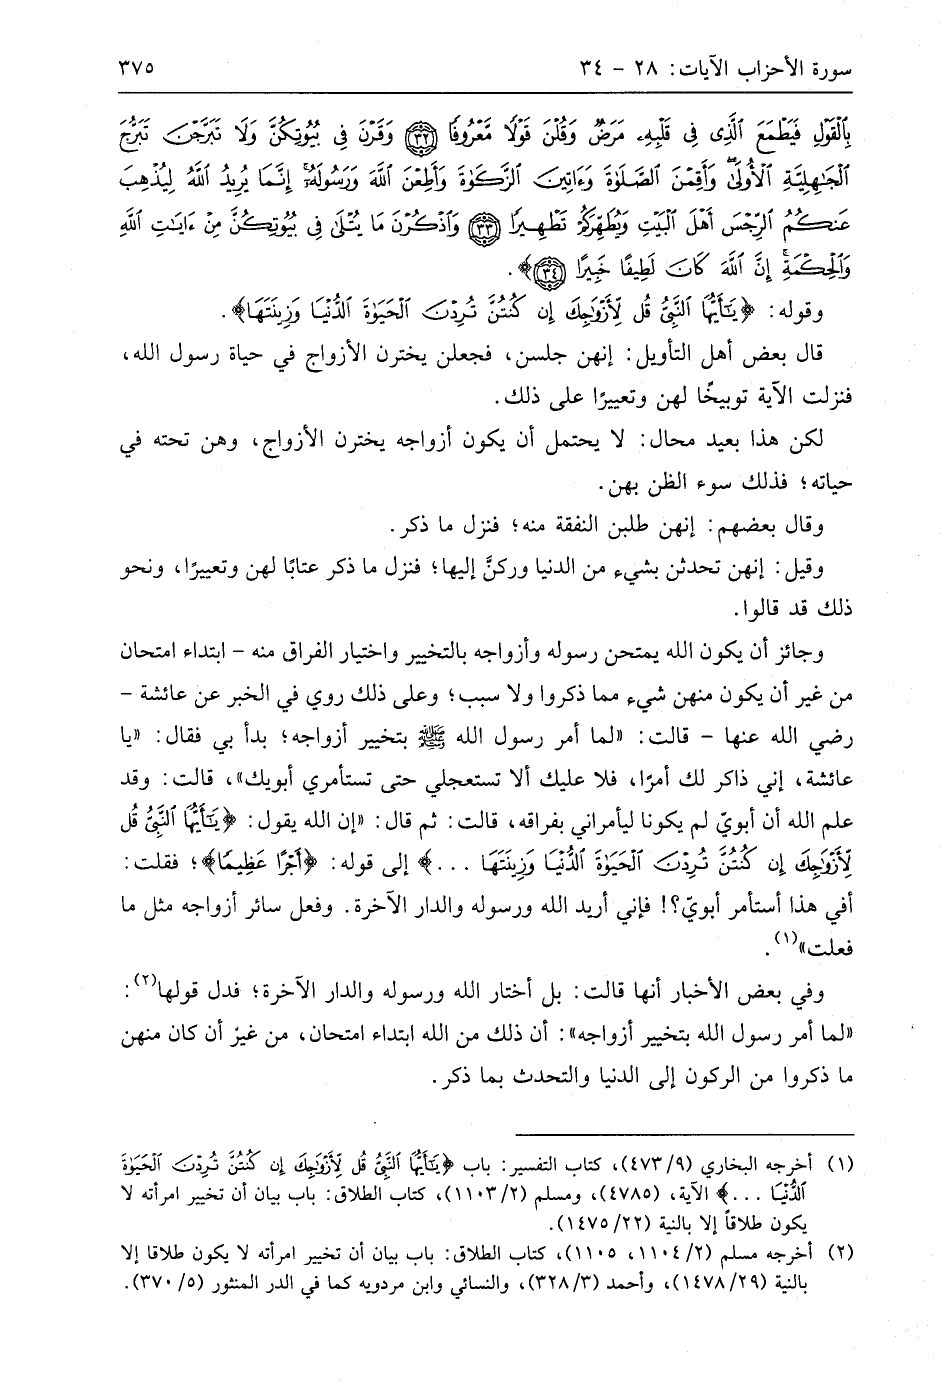 سورة الأحزاب الآيات: ٢٨ - ٣٤ ٣٧٥
بِٱلْقَوْلِ فَيَطْمَعَ ٱلَّذِى فِى قَلْبِهِۦ مَرَضٌ وَقُلْنَ قَوْلًا مَّعْرُوفًا ﴿٣٢﴾ وَقَرْنَ فِى بُيُوتِكُنَّ وَلَا تَبَرَّجْنَ تَبَرُّجَ
ٱلْجَـٰهِلِيَّةِ ٱلْأُولَىٰ ۖ وَأَقِمْنَ ٱلصَّلَوٰةَ وَءَاتِينَ ٱلزَّكَوٰةَ وَأَطِعْنَ ٱللَّهَ وَرَسُولَهُۥٓ ۚ إِنَّمَا يُرِيدُ ٱللَّهُ لِيُذْهِبَ
عَنكُمُ ٱلرِّجْسَ أَهْلَ ٱلْبَيْتِ وَيُطَهِّرَكُمْ تَطْهِيرًا ﴿٣٣﴾ وَٱذْكُرْنَ مَا يُتْلَىٰ فِى بُيُوتِكُنَّ مِنْ ءَايَـٰتِ ٱللَّهِ
وَٱلْحِكْمَةِ ۚ إِنَّ ٱللَّهَ كَانَ لَطِيفًا خَبِيرًا ﴿٣٤﴾﴾.
وقوله: ﴿يَـٰٓأَيُّهَا ٱلنَّبِىُّ قُل لِّأَزْوَٰجِكَ إِن كُنتُنَّ تُرِدْنَ ٱلْحَيَوٰةَ ٱلدُّنْيَا وَزِينَتَهَا﴾.
قال بعض أهل التأويل: إنهن جلسن، فجعلن يخترن الأزواج في حياة رسول الله،
فنزلت الآية توبيخًا لهن وتعييرًا على ذلك.
لكن هذا بعيد محال: لا يحتمل أن يكون أزواجه يخترن الأزواج، وهن تحته في
حياته؛ فذلك سوء الظن بهن.
وقال بعضهم: إنهن طلبن النفقة منه؛ فنزل ما ذكر.
وقيل: إنهن تحدثن بشيء من الدنيا وركنَّ إليها؛ فنزل ما ذكر عتابًا لهن وتعييرًا، ونحو
ذلك قد قالوا.
وجائز أن يكون الله يمتحن رسوله وأزواجه بالتخيير واختيار الفراق منه - ابتداء امتحان
من غير أن يكون منهن شيء مما ذكروا ولا سبب؛ وعلى ذلك روي في الخبر عن عائشة -
رضي الله عنها - قالت: «لما أمر رسول الله ﷺ بتخيير أزواجه؛ بدأ بي فقال: «يا
عائشة، إني ذاكر لك أمرًا، فلا عليك ألا تستعجلي حتى تستأمري أبويك»، قالت: وقد
علم الله أن أبويّ لم يكونا ليأمراني بفراقه، قالت: ثم قال: «إن الله يقول: ﴿يَـٰٓأَيُّهَا ٱلنَّبِىُّ قُل
لِّأَزْوَٰجِكَ إِن كُنتُنَّ تُرِدْنَ ٱلْحَيَوٰةَ ٱلدُّنْيَا وَزِينَتَهَا ...﴾ إلى قوله: ﴿أَجْرًا عَظِيمًا﴾؛ فقلت:
أفي هذا أستأمر أبويّ؟! فإني أريد الله ورسوله والدار الآخرة. وفعل سائر أزواجه مثل ما
فعلت»(١).
وفي بعض الأخبار أنها قالت: بل أختار الله ورسوله والدار الآخرة؛ فدل قولها(٢):
«لما أمر رسول الله بتخيير أزواجه»: أن ذلك من الله ابتداء امتحان، من غير أن كان منهن
ما ذكروا من الركون إلى الدنيا والتحدث بما ذكر.
(١) أخرجه البخاري (٤٧٣/٩)، كتاب التفسير: باب ﴿يَـٰٓأَيُّهَا ٱلنَّبِىُّ قُل لِّأَزْوَٰجِكَ إِن كُنتُنَّ تُرِدْنَ ٱلْحَيَوٰةَ
ٱلدُّنْيَا ...﴾ الآية، (٤٧٨٥)، ومسلم (١١٠٣/٢)، كتاب الطلاق: باب بيان أن تخيير امرأته لا
يكون طلاقاً إلا بالنية (١٤٧٥/٢٢).
(٢) أخرجه مسلم (١١٠٤/٢، ١١٠٥)، كتاب الطلاق: باب بيان أن تخيير امرأته لا يكون طلاقا إلا
بالنية (١٤٧٨/٢٩)، وأحمد (٣٢٨/٣)، والنسائي وابن مردويه كما في الدر المنثور (٣٧٠/٥).